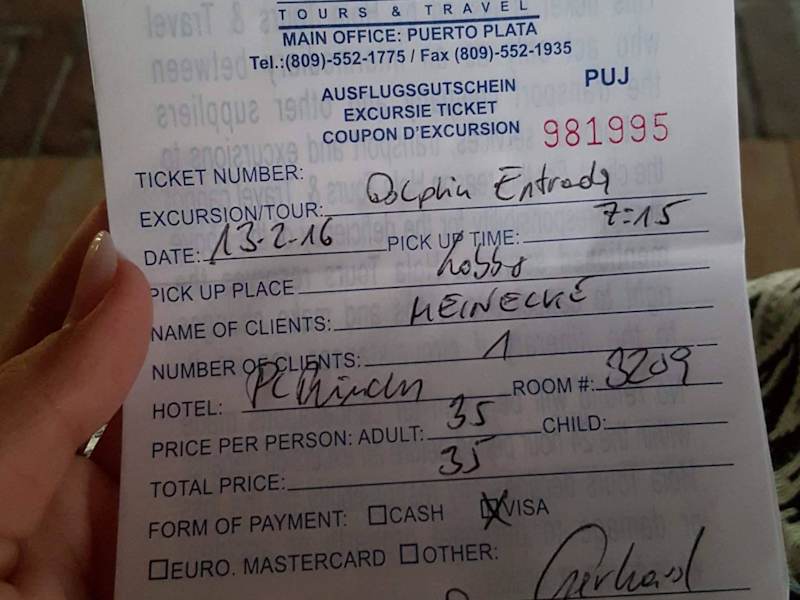 TOURS & TRAVEL
MAIN OFFICE: PUERTO PLATA
Tel.:(809)-552-1775 / Fax (809)-552-1935
AUSFLUGSGUTSCHEIN PUJ
EXCURSIE TICKET
COUPON D'EXCURSION 981995
TICKET NUMBER:
EXCURSION/TOUR: Dolphin Entrada
DATE: 13-2-16 PICK UP TIME: 7:15
PICK UP PLACE lobby
NAME OF CLIENTS: MEINECKE
NUMBER OF CLIENTS: 1
HOTEL: ROOM #: 3209
PRICE PER PERSON: ADULT: 35 CHILD:
TOTAL PRICE: 35
FORM OF PAYMENT: CASH VISA
EURO. MASTERCARD OTHER:
Gerhard